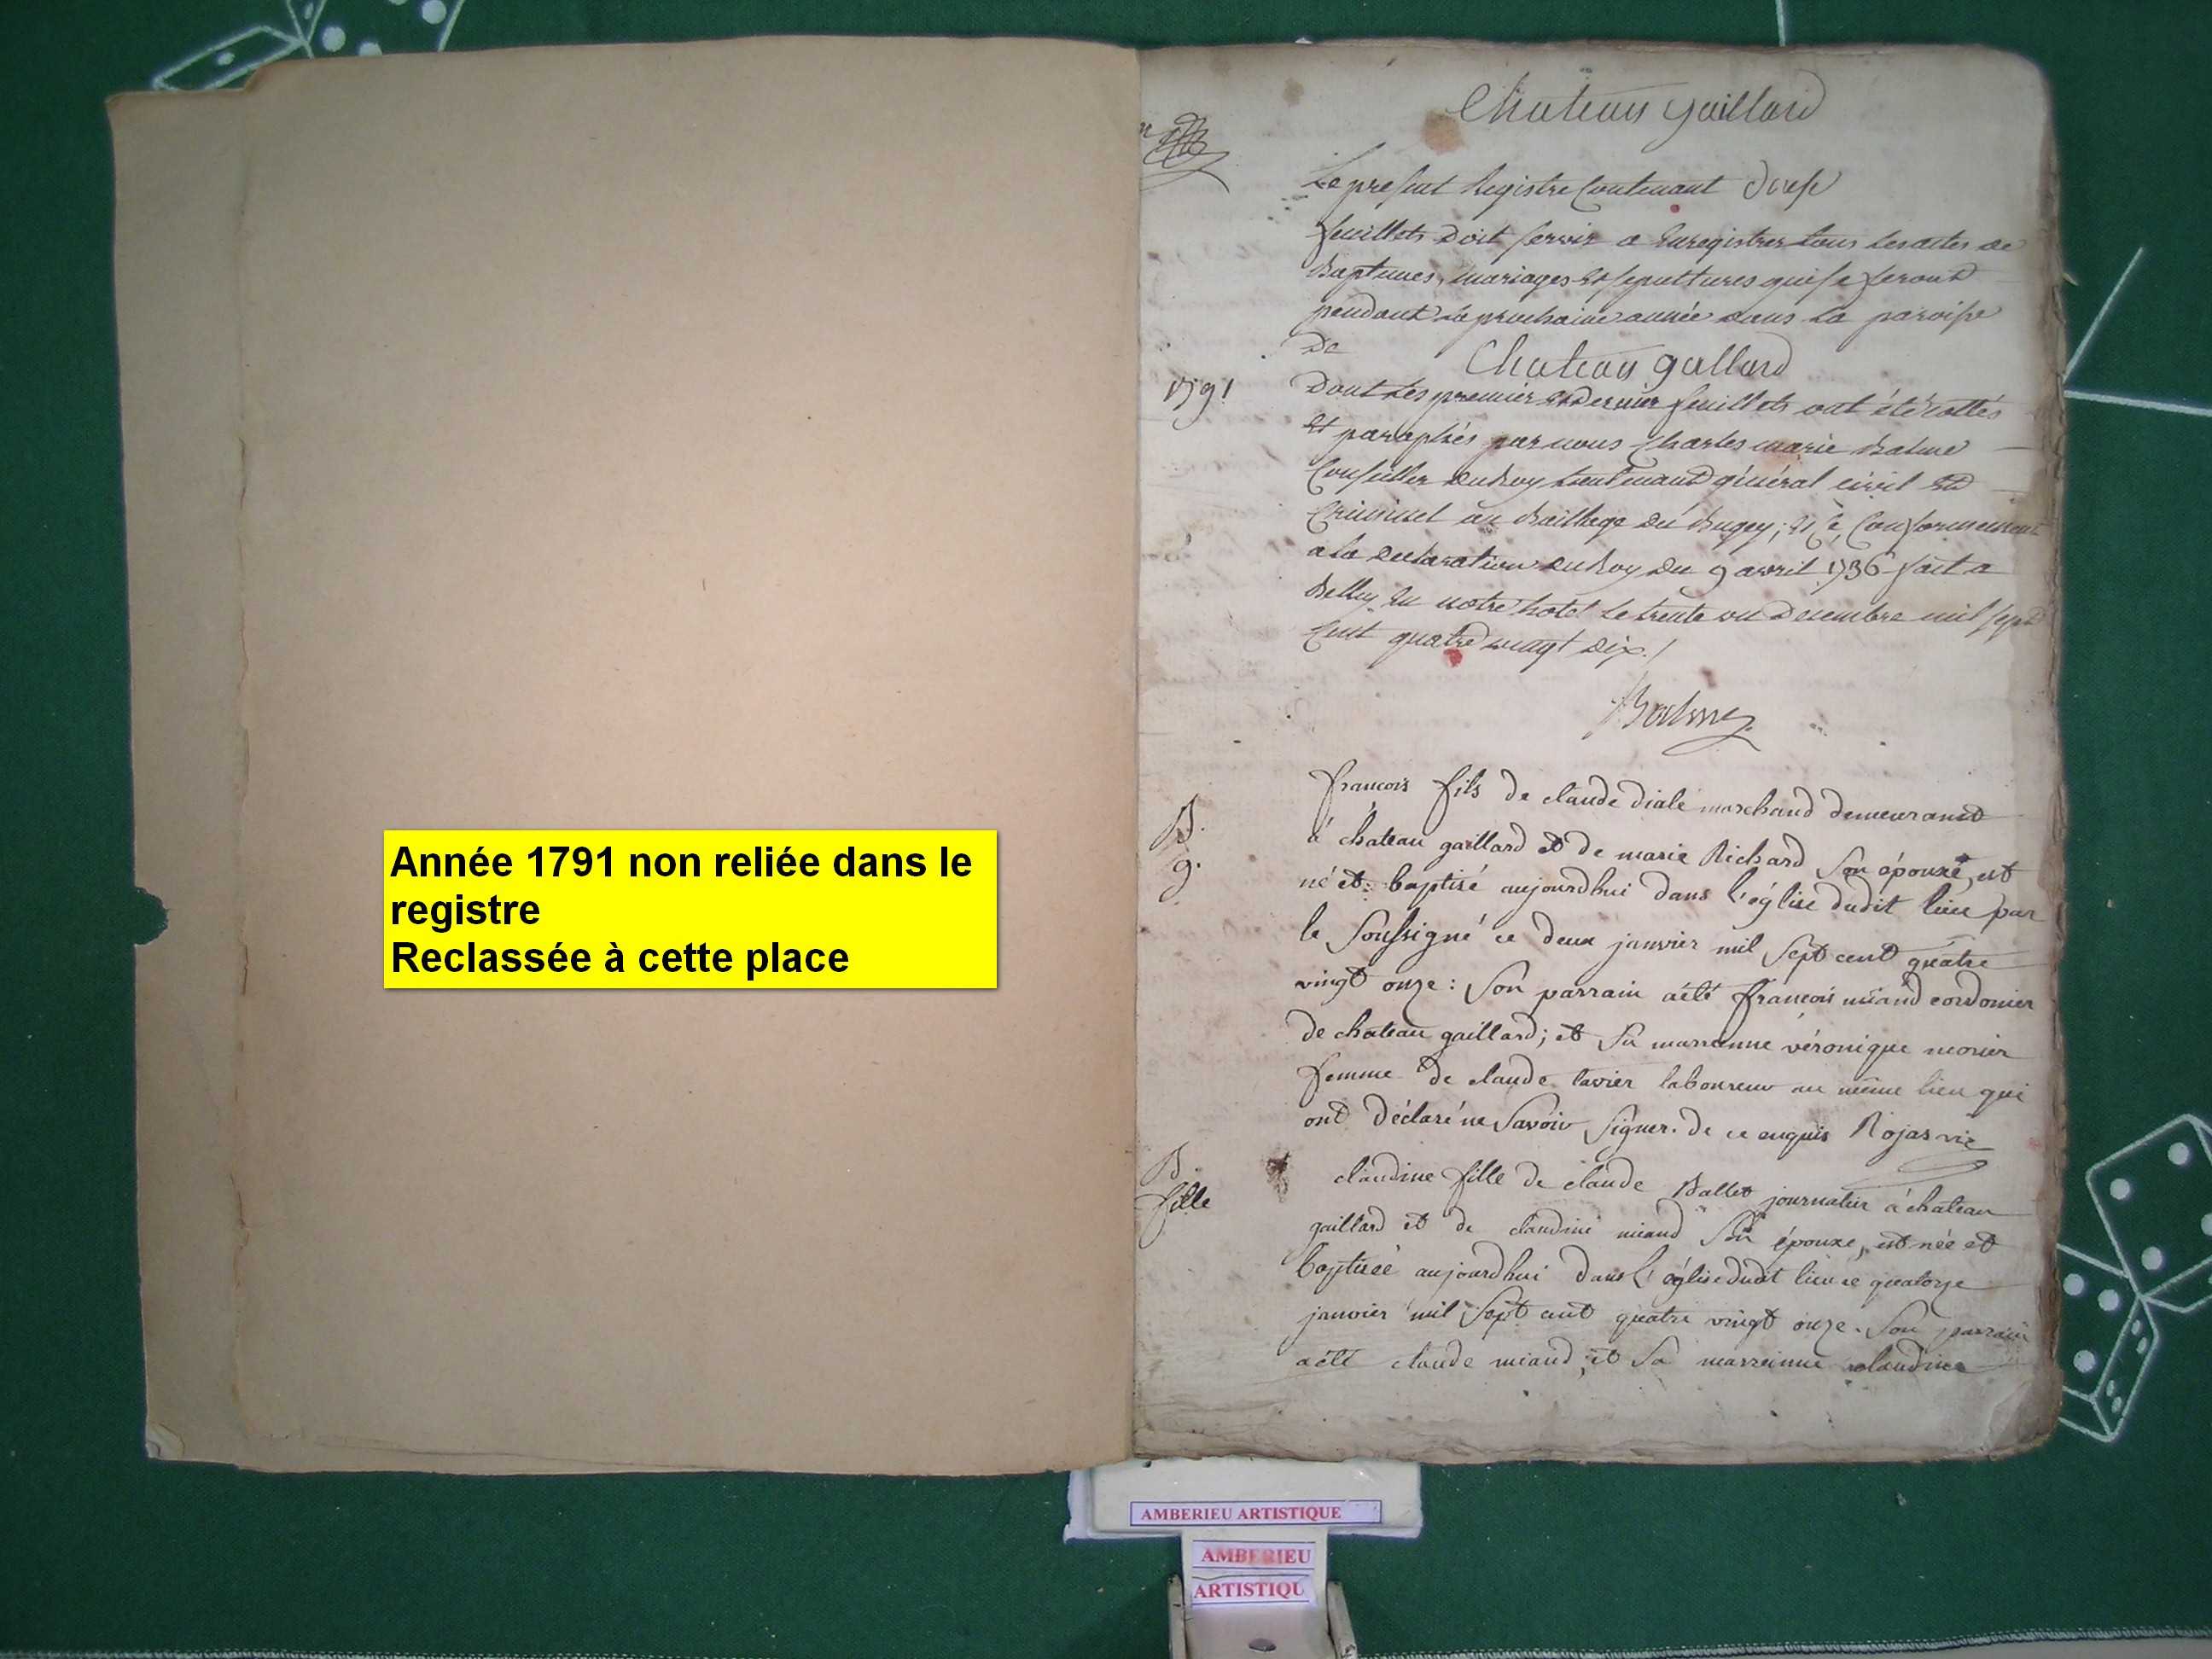 Année 1791 non reliée dans le
registre
Reclassée à cette place
Chateau gaillard
Le present Registre Contenant douse
feuillets doit servir a Enregistrer tous les actes de
Baptemes, mariages Et sepultures qui se feront
pendant la prochaine année dans la paroisse
De Chateau gallard
1791
Dont les premier et dernier feuillets ont été cottés
Et paraphés par nous Charles marie Balme
Conseiller du Roy Lieutenant général civil Et
Criminel au Bailliage du Bugey; Et ce, Conformement
a la declaration du Roy du 9 avril 1736 fait a
Belley En notre hotel le trente un Decembre mil sept
Cent quatre vingt dix./
Balme
B.
g.
francois fils de claude diale marchand demeurant
à chateau gaillard et de marie Richard son épouse, est
né et baptisé aujourdhui dans l'église dudit lieu par
le soussigné ce deux janvier mil sept cent quatre
vingt onze: son parrain a été francois miand cordonier
de chateau gaillard; et sa marrainne véronique
femme de claude tavier laboureur au même lieu qui
ont déclaré ne savoir signer. de ce enquis Rojas vic
B.
fille
claudine fille de claude Ballet journalier à chateau
gaillard et de claudine miand son épouse, est née et
baptisée aujourdhui dans l'église dudit lieu ce quatorze
janvier mil sept cent quatre vingt onze. son parrain
a été claude miand; et sa marrainne claudine
AMBERIEU ARTISTIQUE
AMBERIEU
ARTISTIQU